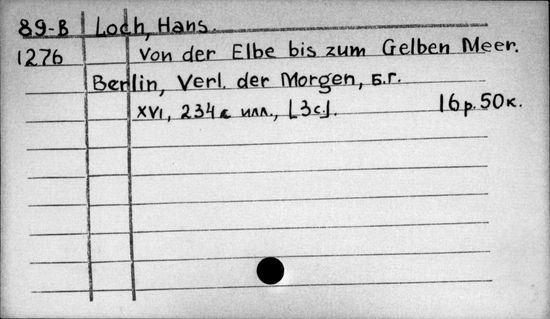 89-В Loch, Hans.
1276 Von der Elbe bis zum Gelben Meer.
Berlin, Verl. der Morgen, б.г.
XVI, 234 с илл., [3с.]. 16р.50к.